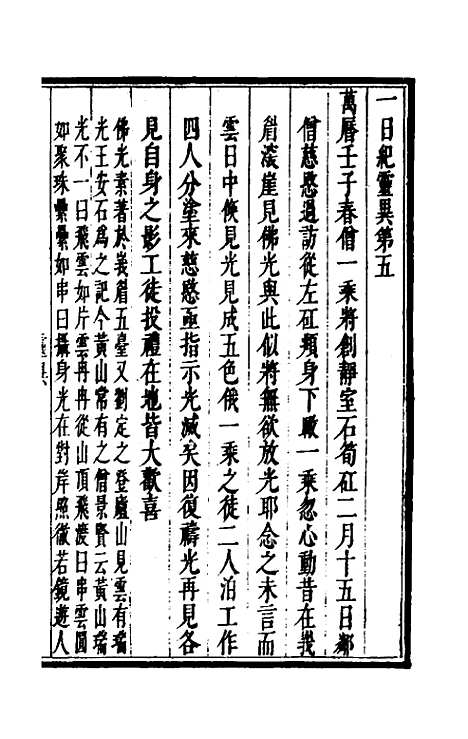 一曰紀靈異第五
萬曆壬子春僧一乘將創靜室石筍矼二月十五日鄰
僧慈愍過訪從左矼頫身下瞰一乘忽心動昔在峩
眉滚崖見佛光與此似將無欲放光耶念之未言而
雲日中倏見光見成五色俄一乘之徒二人洎工作
四人分塗來慈愍亟指示光滅矣因復禱光再見各
見自身之影工徒投禮在地皆大歡喜
佛光素著於峩眉五臺又劉定之登廬山見雲有瑞
光王安石爲之記今黃山常有之僧景賢云黃山瑞
光不一曰飛雲如片雲冉冉從山頂飛渡曰串雲圓
如聚珠纍纍如串曰攝身光在對岸照徹若鏡遊人
靈異